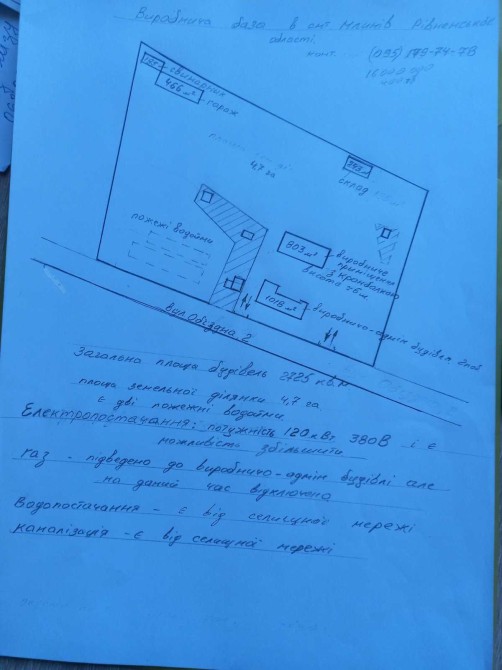 Виробнича база в смт Млинів Рівненської
області.
конт. (095) 179-74-78
свинарник
466 м²
гараж
4,7 га
склад
пожежі водойми
803 м²
виробниче
приміщення
з кранбалкою
висота
1018 м²
виробничо-адмін будівля
вул. Обїздна 2
Загальна площа будівель 2725 кв.м
площа земельної ділянки 4,7 га
є дві пожежні водойми.
Електропостачання: потужність 120 кВт 380В і є
можливість збільшити
газ - підведено до виробничо-адмін будівлі але
на даний час відключена
Водопостачання - є від селищної мережі
каналізація - є від селищної мережі